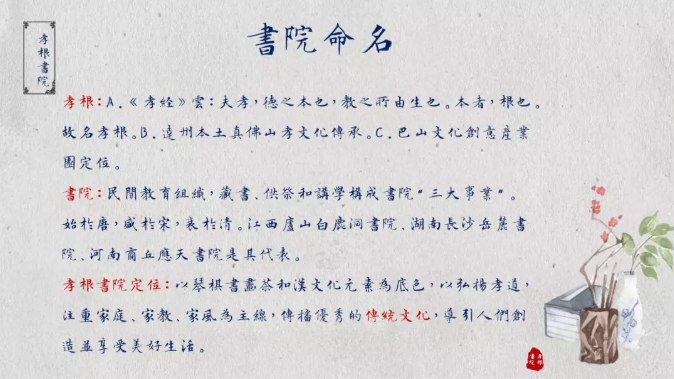 孝根書院
書院命名
孝根：A.《孝經》雲：夫孝，德之本也，教之所由生也。本者，根也。
故名孝根。B.達州本土真佛山孝文化傳承。C.巴山文化創意產業
園定位。
書院：民間教育組織，藏書、供祭和講學構成書院“三大事業”。
始於唐，盛於宋，衰於清。江西廬山白鹿洞書院、湖南長沙岳麓書
院、河南商丘應天書院是其代表。
孝根書院定位：以琴棋書畫茶和漢文化元素為底色，以弘揚孝道，
注重家庭、家教、家風為主線，傳播優秀的傳統文化，導引人們創
造並享受美好生活。